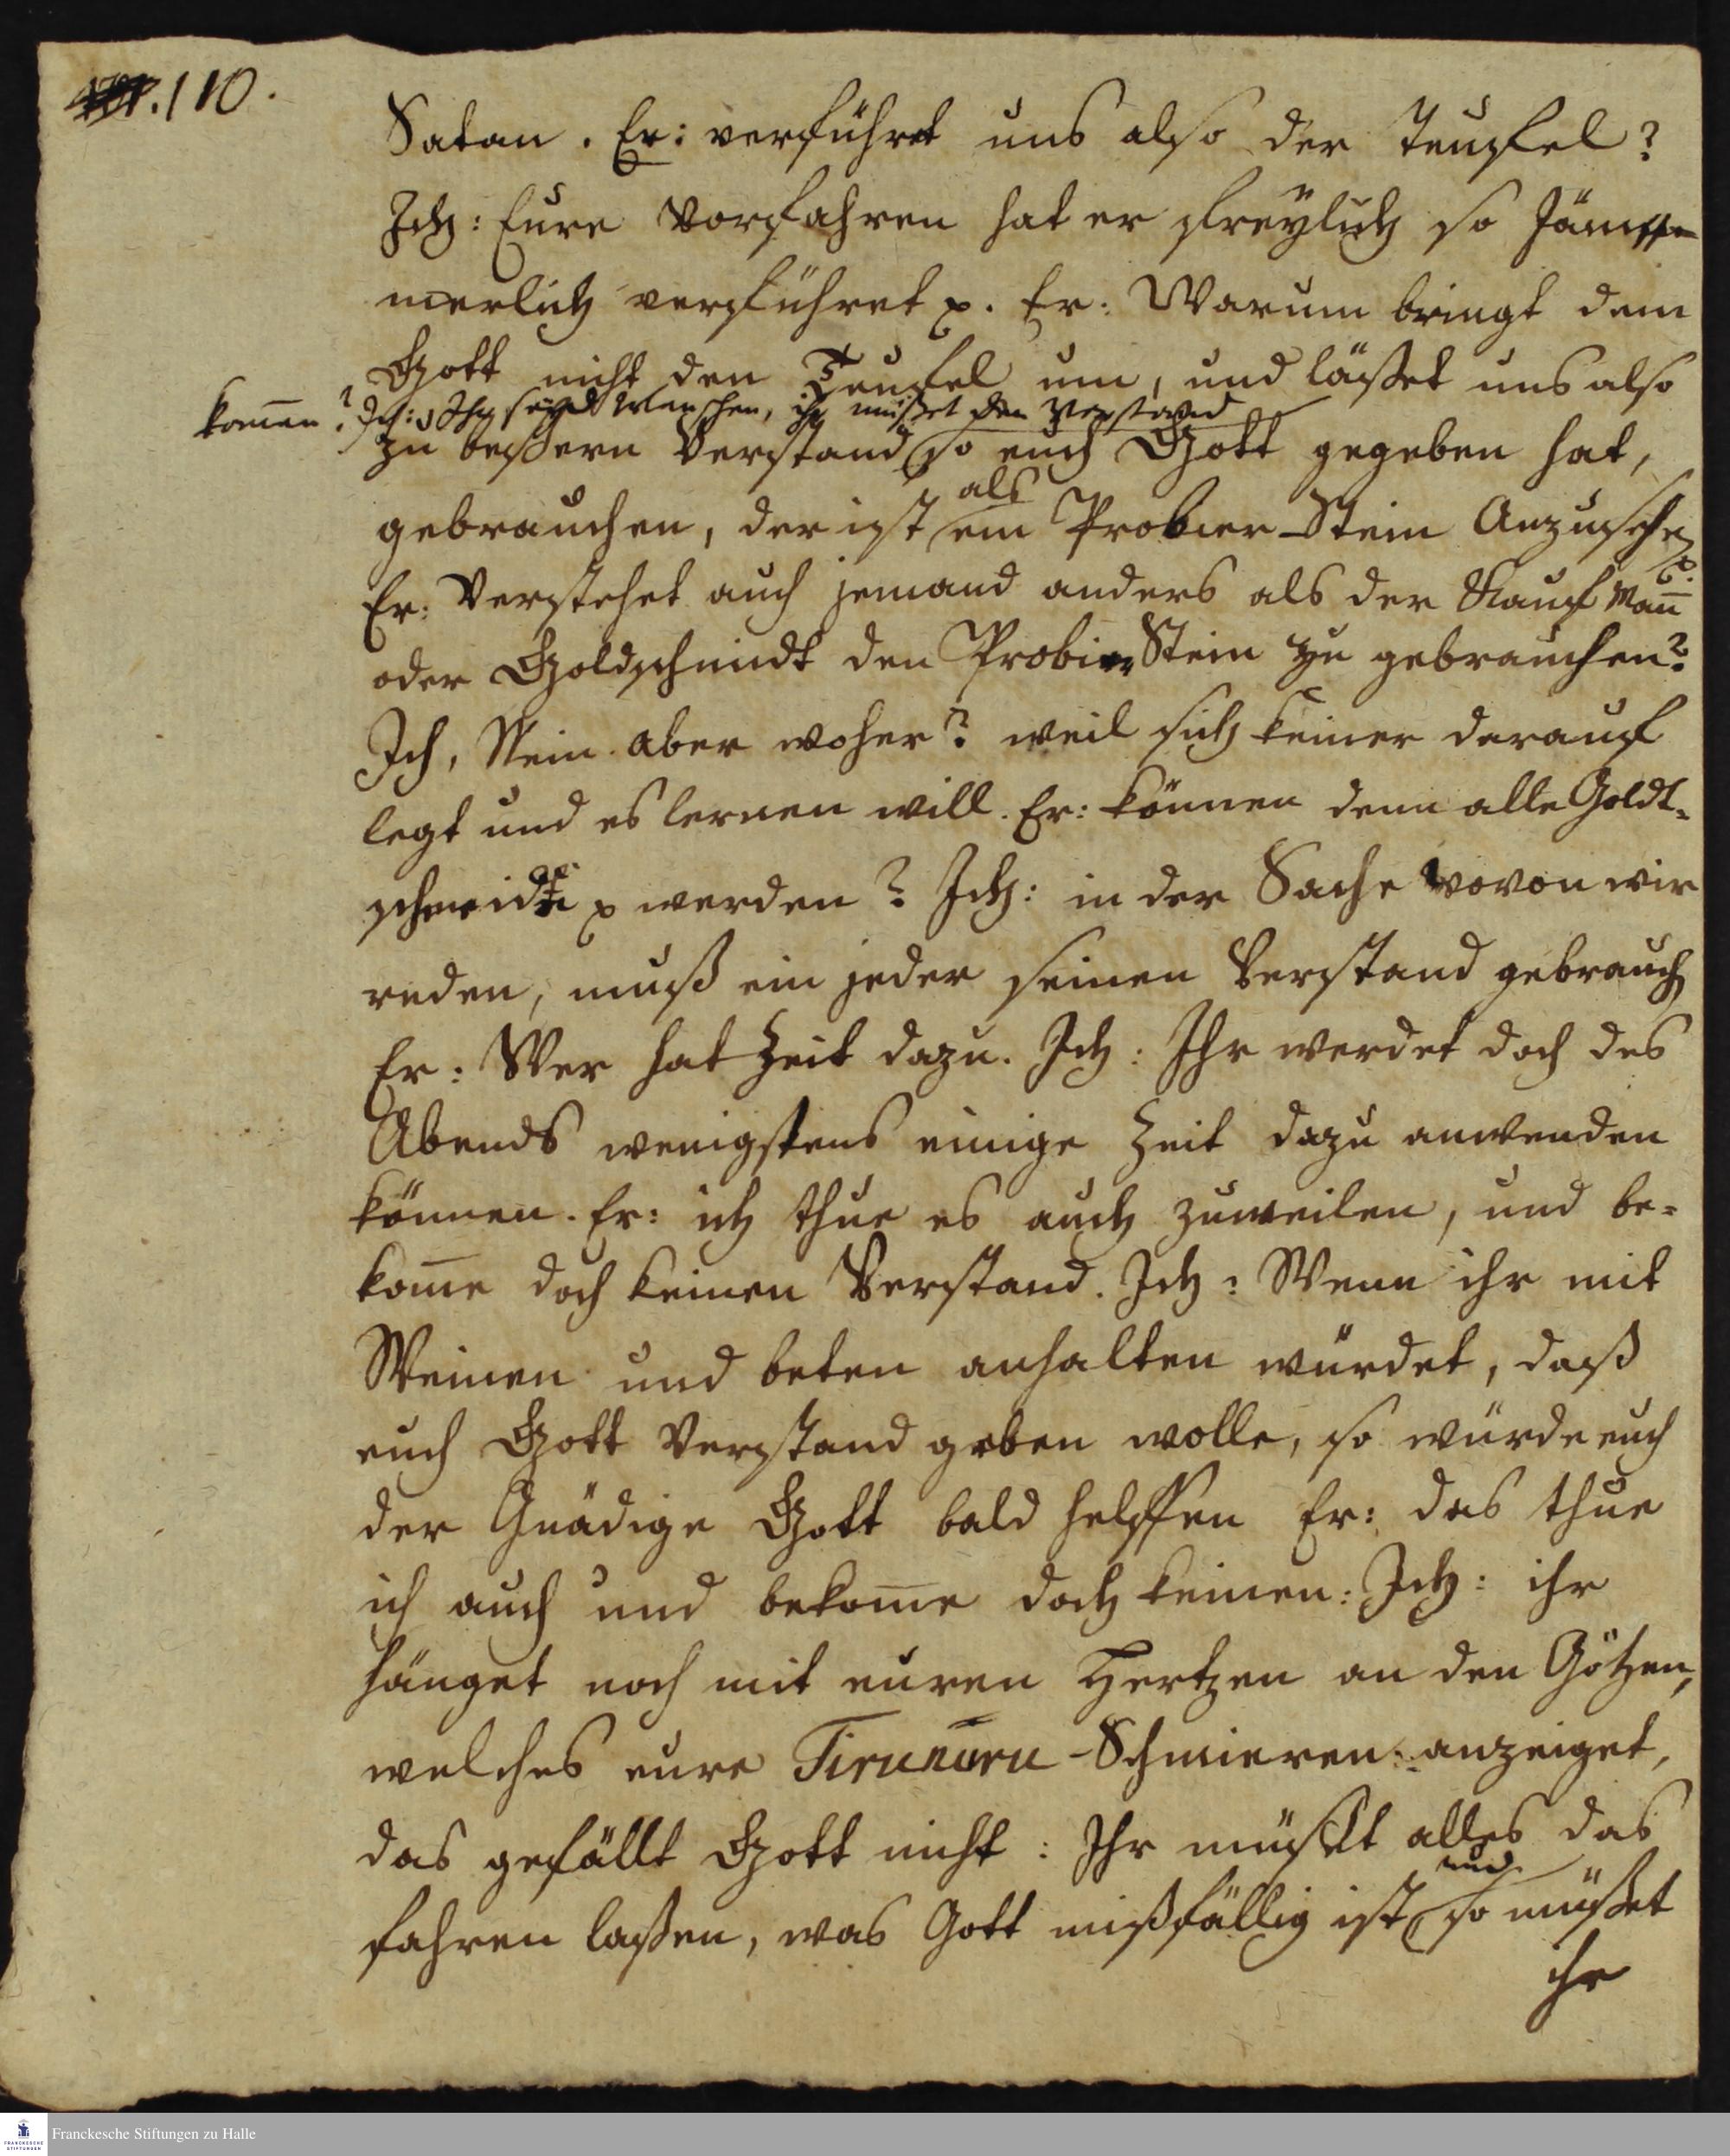 110.
Satan. Er: verführt uns also der Teufel?
Ich: Eure Vorfahren hat er freylich so Jäm
merlich verführet p. Er: Warum bringt denn
Gott nicht den Teufel um, und läßet uns also
kom̅en? Ich: Ihr seyd Menschen, ihr müßet den Verstand
zu beßern Verstand so euch Gott gegeben hat,
als
gebrauchen, der ist ein Probier-Stein Anzusehen
p.
Er: Verstehet auch jemand anders als der Kaufman̅
oder Goldschmidt den Probier Stein zu gebrauchen?
Ich, Nein. aber woher? weil sich keiner darauf
legt und es lernen will. Er: können denn alle Goldt-
schmidte p werden? Ich: in der Sache wovon wir
reden, muß ein jeder seinen Verstand gebrauch
Er: Wer hat Zeit dazu. Ich: Ihr werdet doch des
Abends wenigstens einige Zeit dazu anwenden
können. Er: ich thue es auch zuweilen, und be-
kom̅e doch keinen Verstand. Ich: Wenn ihr mit
Weinen und beten anhalten würdet, daß
euch Gott Verstand geben wolle, so würde euch
der Gnädige Gott bald helffen Er: das thue
ich auch und bekom̅e doch keinen: Ich: ihr
hänget noch mit euren Hertzen an den Götzen,
welches eure Tirunūru-Schmieren anzeiget,
das gefällt Gott nicht: Ihr müßt alles das
und
fahren laßen, was Gott mißfällig ist, so müßet
ihr
Franckesche Stiftungen zu Halle
FRANCKESCHE
STIFTUNGEN